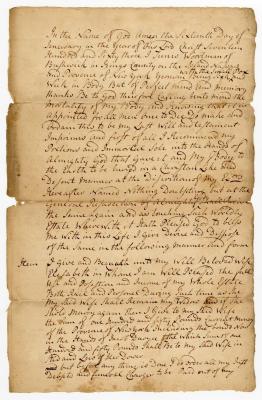 In the Name of God Amen the Sixteenth Day of
January in the Year of our Lord Christ Seventeen
Hundred and Sixty three I Teunis Woortman of
Bushwick in Kings County on the Island Nassaw
and Province of New York Yeoman Being Sick with the Small Pox
Weak in Body But of Perfect mind and Memory
thanks Be to God therefore Calling unto mind the
Mortality of My Body and Knowing that it is
appointed for all men once to Die do make and
ordain this to be my Last Will and testament
Imprimis and first of all I Recommend my
Precious and Immortal Sole into the Hands of
Almighty God that gave it and My Body to
the Earth to be buried in a Christian like and
Decent manner at the Discretion of My
Hereafter Named Nothing Doubting but at the
General Resurrection
the Same again and as touching Such Worldly
Estate Wherewith it hath Pleased God to bless
me with in this Life I give devise and Dispose
of the Same in the following manner and form
Item I give and Bequeath unto my Well Beloved Wife
Elizabeth in Whom I am Well Pleased the full
use and Possession and Income of my Whole Estate
Both Real and Personal During Such time as She
my Said Wife Shall Remain my Widow and if She
Shold Marry again then I Give to my Said Wife
the Sum of one Hundred and fifty Pound current money
of the Province of New York Including the bonds Now
in the Hands of
Hundred and fifty Pounds Shall Be to my Said Wife in
and Lieu of her Dower
but before any thing is done I order all my Just
Debts and funeral Charges to be paid out of my